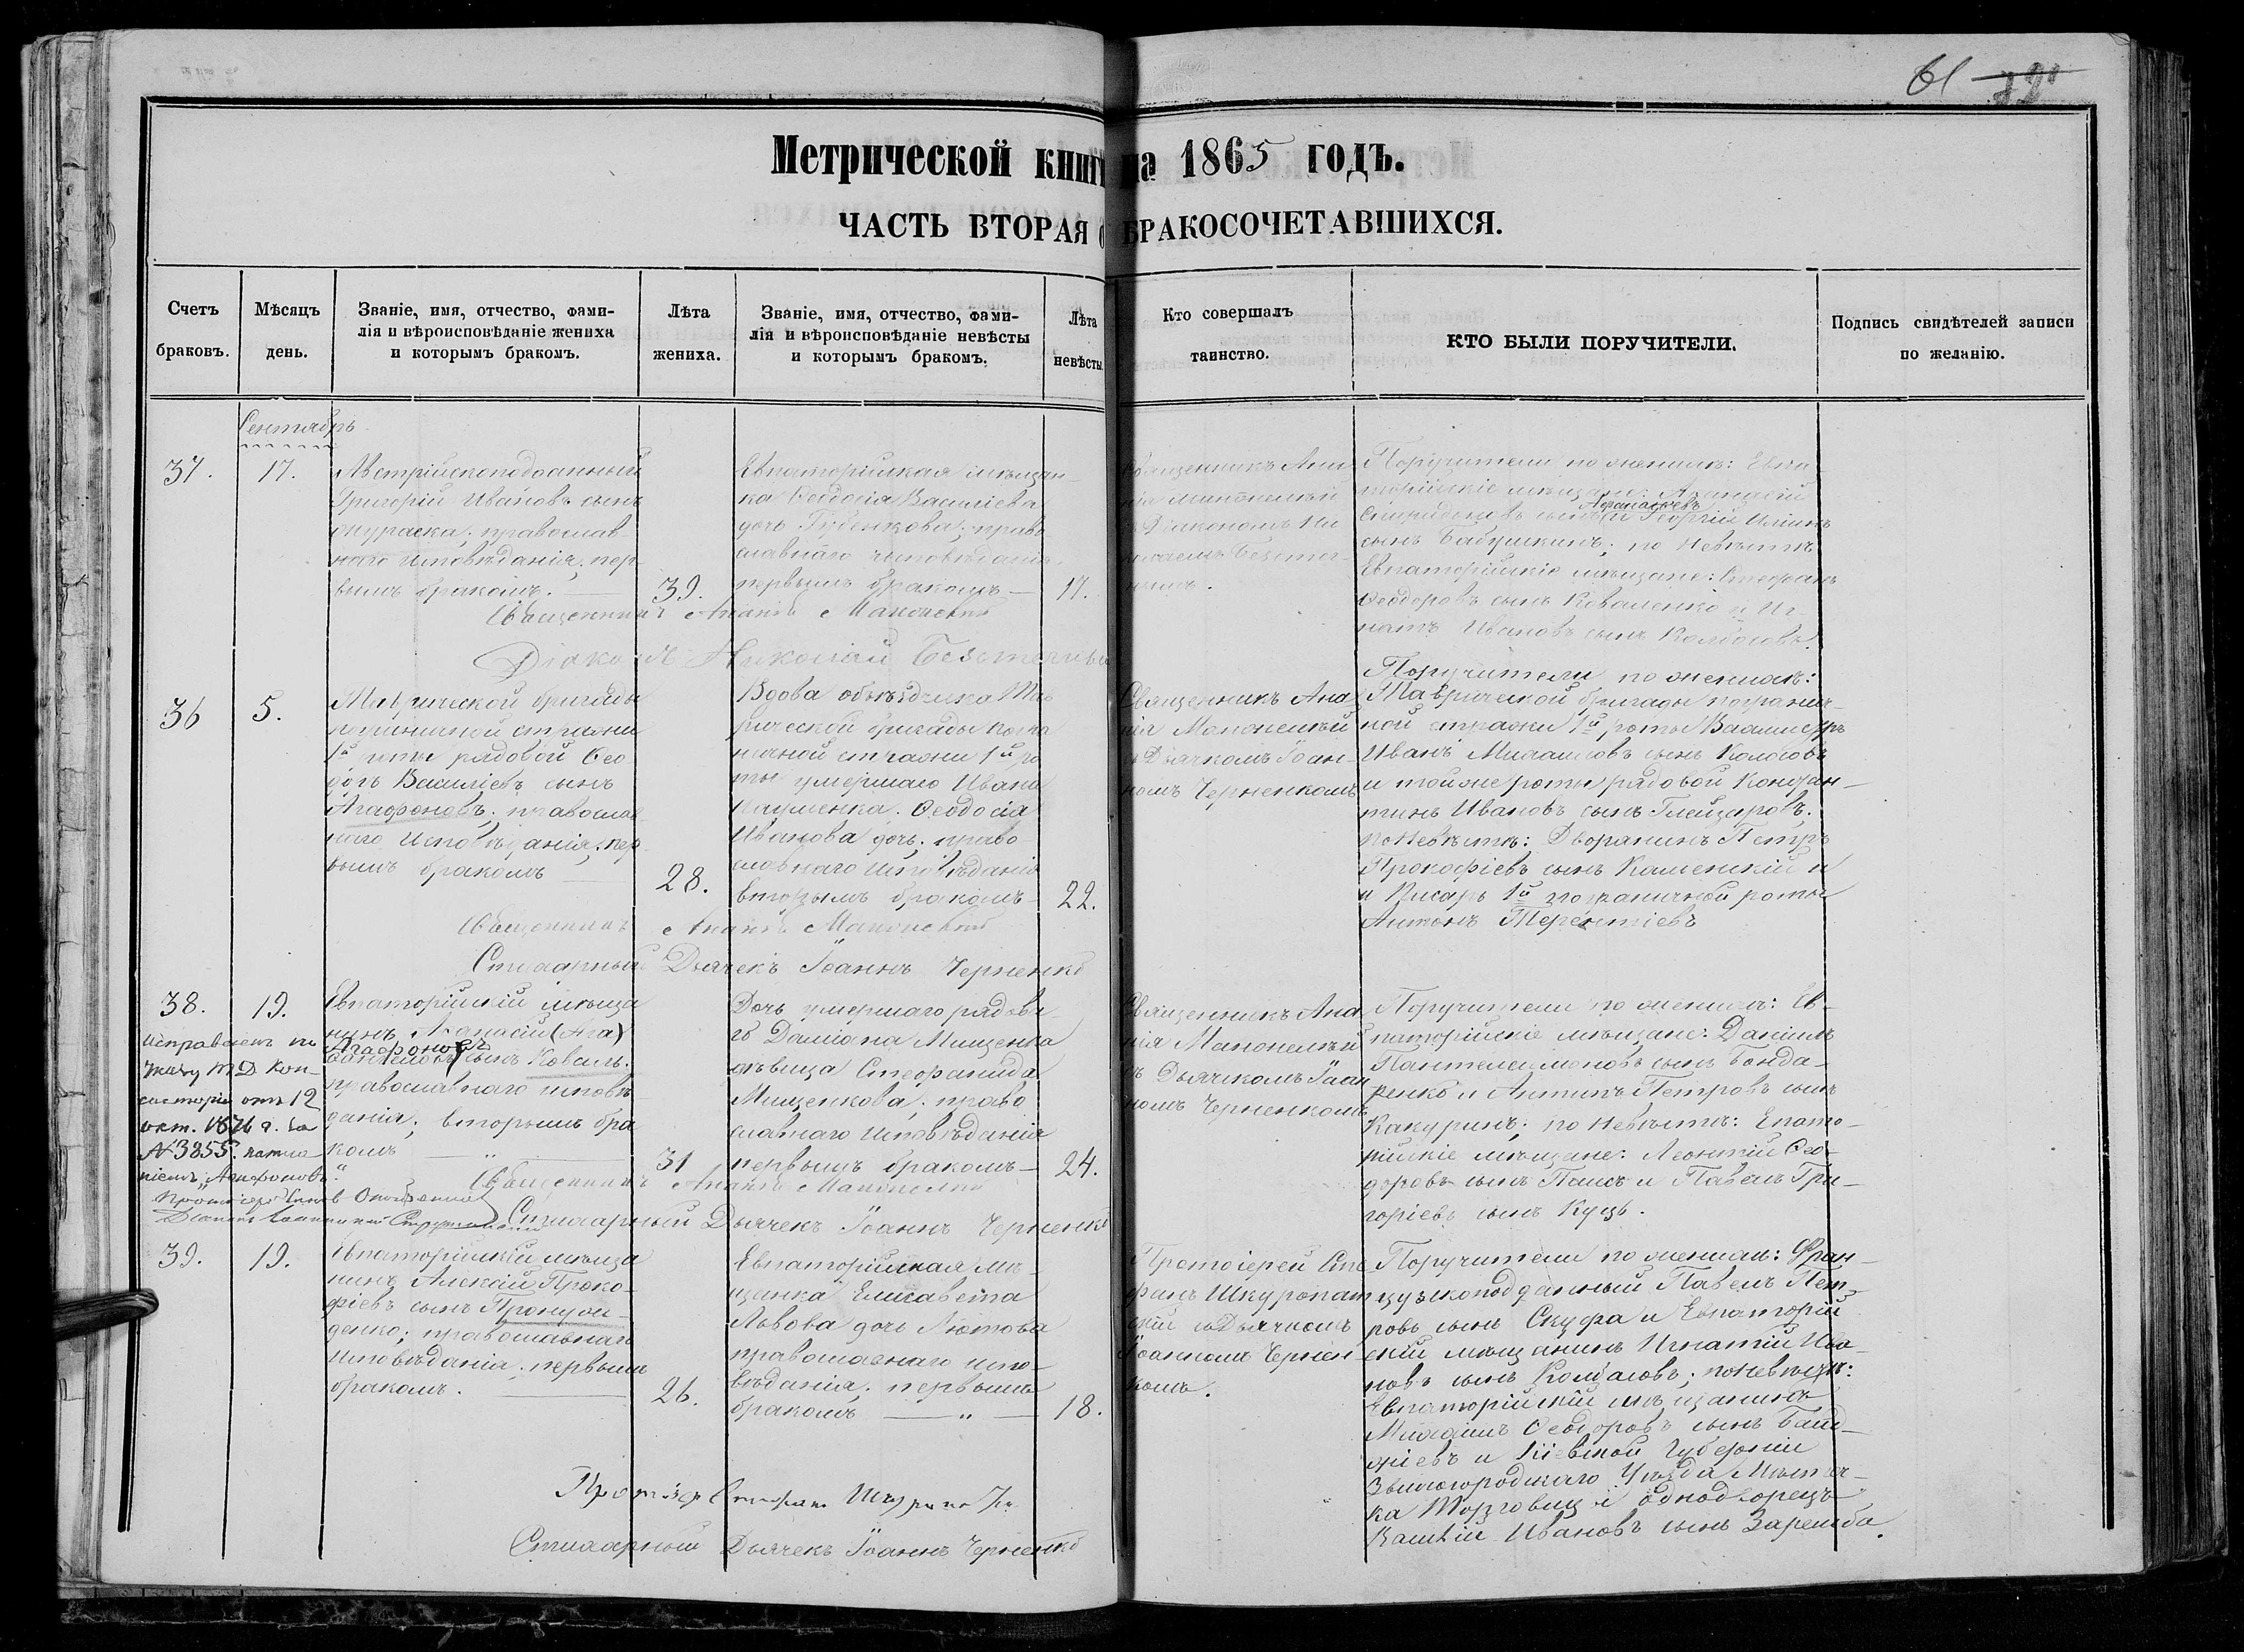 61 32
Метрической книги на 1865 годъ.
ЧАСТЬ ВТОРАЯ О БРАКОСОЧЕТАВШИХСЯ.
Счетъ браковъ.
Мѣсяцъ день.
Званіе, имя, отчество, фами-
лія и вѣроисповѣданіе жениха
и которымъ бракомъ.
Лѣта жениха.
Званіе, имя, отчество, фами-
лія и вѣроисповѣданіе невѣсты
и которымъ бракомъ.
Лѣта невѣсты.
Кто совершалъ таинство.
КТО БЫЛИ ПОРУЧИТЕЛИ.
Подпись свидѣтелей записи
по желанію.
Сентябрь
37.
17.
Австрійскоподданный
Григорій Ивановъ сынъ
православ
наго исповѣданія; пер
вымъ бракомъ.
39.
Евпаторійская мѣщан-
ка Ѳеодосія Василіева
дочь Губенкова; право
славнаго исповѣданія
первымъ бракомъ
17.
Священникъ Ана
нія Маконскій
съ Діакономъ Ни
колаемъ Безмер-
нымъ.
Поручители по женихѣ: Евпа
торійскіе мѣщане: Аѳанасій
Спиридоновъ сынъ Аѳанасьевъ и Георгій Илиинъ
сынъ Бабушкинъ; по невѣстѣ
Евпаторійскіе мѣщане: Стефанъ
Ѳеодоровъ сынъ Коваленко и Иг-
натъ Ивановъ сынъ
Священникъ Ананія Маконскій
Діаконъ Николай
36
5.
Таврической бригады
пограничной стражи
1й роты рядовой Ѳео
дотъ Василіевъ сынъ
Агафоновъ; православ
наго исповѣданія; пер
вымъ бракомъ
28.
Вдова объѣздчика Тав
рической бригады погра
ничной стражи 1й ро
ты умершаго Ивана
Науменка Ѳеодосія
Иванова дочь; право
славнаго исповѣданія
вторымъ бракомъ
22.
Священникъ Ана
нія Маконскій
съ Дьячкомъ Іоан-
номъ Черненкомъ
Поручители по женихѣ:
Таврической бригады погранич-
ной стражи 1й роты Вахмистръ
Иванъ Михаиловъ сынъ Колосовъ
и тойже роты рядовой Констан-
тинъ Ивановъ сынъ
по невѣстѣ: Дворянинъ Петръ
Прокофіевъ сынъ Каменскій и
и Писарь 1й пограничной роты
Антонъ Терентіевъ
Священникъ Ананія Маконскій
Стихарный Дьячекъ Іоаннъ Черненко
38.
19.
Исправленъ по
указу Т. Д. Кон-
систоріи отъ 12
окт. 1876 г. за
№ 3855.
Евпаторійскій мѣща
нинъ Аѳанасій (Ага)
Агафоновъ
сынъ Коваль.
православнаго исповѣ
данія; вторымъ бра
комъ
31
Дочь умершаго рядова
го Даміана Мищенка
дѣвица Стефанида
Мищенкова; право
славнаго исповѣданія
первымъ бракомъ
24.
Священникъ Ана
нія Маконскій
съ Дьячкомъ Іоан
номъ Черненкомъ
Поручители по женихѣ: Ев-
паторійскіе мѣщане: Даніилъ
Пантелеимоновъ сынъ Бонда-
ренко и Антипъ Петровъ сынъ
Какуринъ; по невѣстѣ: Епато-
рійскіе мѣщане: Леонтій Ѳео-
доровъ сынъ и Павелъ Гри-
горіевъ сынъ Куцъ.
Священникъ Ананія Маконскій
Стихарный Дьячекъ Іоаннъ Черненко
39.
19.
Евпаторійскій мѣща
нинъ Алексій Проко-
фіевъ сынъ
денко; православнаго
исповѣданія; первымъ
бракомъ.
26.
Евпаторійская мѣ-
щанка Елисавета
Львова дочь Лютова
православнаго испо-
вѣданія; первымъ
бракомъ
18.
Протоіерей Сте
фанъ Шкуропат
скій съ Дьячкомъ
Іоанномъ Чернен-
комъ.
Поручители по женихѣ: Фран-
цузскоподданный Павелъ Пет-
ровъ сынъ Скуфа и Евпаторій
скій мѣщанинъ Игнатій Ива-
новъ сынъ; по невѣстѣ:
Евпаторійскій мѣщанинъ
Михаилъ Ѳеодоровъ сынъ
и Кіевской Губерніи
Звенигородскаго Уѣзда Мѣстеч-
ка Торговицъ однодворецъ
Василій Ивановъ сынъ Заремба.
Стихарный Дьячекъ Іоаннъ Черненко